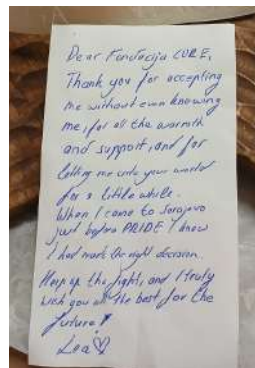 Dear Fondacija CURE,
Thank you for accepting
me without even knowing
me, for all the warmth
and support, and for
letting me into your world
for a little while.
When I came to Sarajevo
just before PRIDE I knew
I had made the right decision.
Keep up the fight, and I truly
wish you all the best for the
future!
Lea ♡